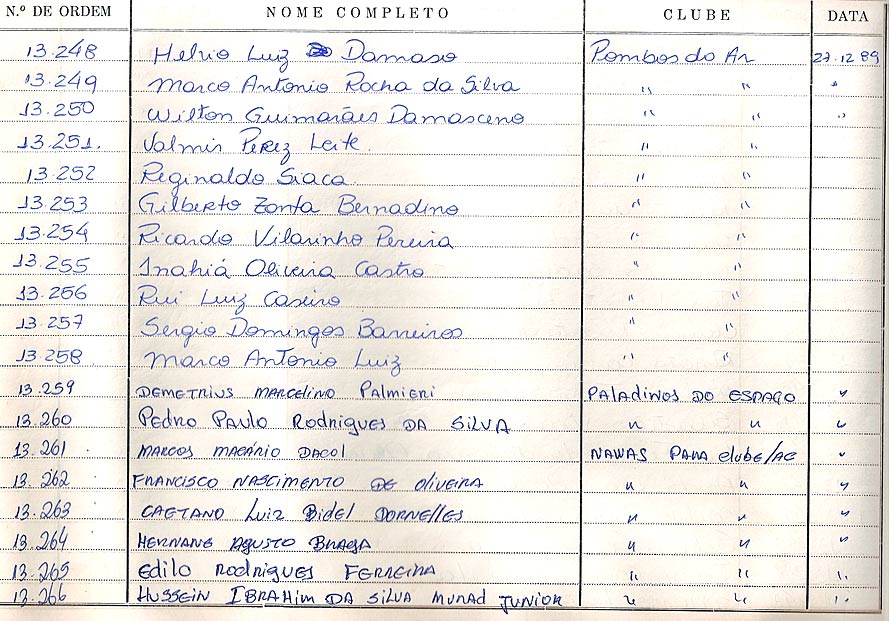 N.º DE ORDEM NOME COMPLETO CLUBE DATA
13.248 Helvio Luiz Damaso Pombos do Ar 27.12 89
13.249 Marco Antonio Rocha da Silva " " "
13.250 Wilton Guimarães Damasceno " " "
13.251. Valmir Perez Leite. " "
13.252 Reginaldo Siaca " "
13.253 Gilberto Zonta Bernadino " "
13.254 Ricardo Vilarinho Pereira " "
13.255 Inahiá Oliveira Castro " "
13.256 Rui Luiz Caseiro " "
13.257 Sergio Domingos Barreiros " "
13.258 Marco Antonio Luiz " "
13.259 DEMETRIUS MARCELINO PALMIERI PALADINOS DO ESPAÇO "
13.260 PEDRO PAULO RODRIGUES DA SILVA " " "
13.261 MARCOS MACÁRIO DACOL NAWAS PARA clube/AC "
13.262 FRANCISCO NASCIMENTO DE OLIVEIRA " " "
13.263 CAETANO LUIZ BIDEL DORNELLES " " "
13.264 HERNANE AGUSTO BRAGA " " "
13.265 EDILO RODRIGUES FERREIRA " " "
13.266 HUSSEIN IBRAHIM DA SILVA MURAD JUNIOR " " "